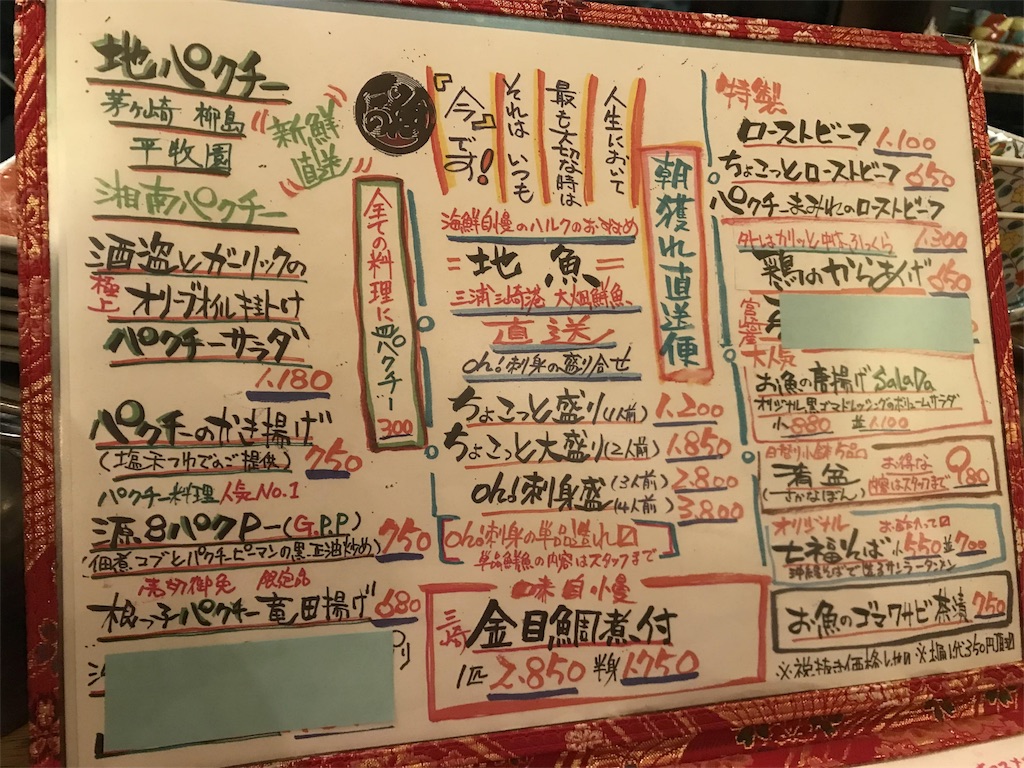 地パクチー
茅ヶ崎 柳島
平牧園
新鮮
直送
湘南パクチー
酒盗とガーリックの
極上 オリーブオイル掛け
パクチーサラダ
1.180
パクチーのかき揚げ
(塩天つゆでのご提供) 750
パクチー料理人気No.1
源8パクP-(G.P.P)
(佃煮コブとパクチーピーマンの黒正油炒め) 750
売切御免 限定品
根っ子パクチー竜田揚げ 680
全ての料理に皿パクチー
300
人生において
最も大切な時は
それは いつも
『今』です!
海鮮自慢のハルクのおすすめ
=地魚=
三浦三崎港 大畑鮮魚
直送
oh!刺身の盛り合せ
朝獲れ直送便
ちょこっと盛り(1人前) 1.200
ちょこっと大盛り(2人前) 1.850
oh!刺身盛 (3人前) 2.800
(4人前) 3.800
oh!刺身の単品盛れ〼
単品鮮魚の内容はスタッフまで
味自慢
三崎 金目鯛煮付
1匹 2.850 半身 1.750
特製
ローストビーフ 1.100
ちょこっとローストビーフ 650
パクチーまみれのローストビーフ
1.300
外はカリッと中はふっくら
鶏のからあげ 650
大人気
お魚の唐揚げSalaDa
オリジナル黒ゴマドレッシングのボリュームサラダ
小 880 並 1.100
日替り小鉢5品
清盆 お得な 980
(さかなぼん) 内容はスタッフまで
オリジナル
七福そば 小550 並700
お魚のゴマワサビ茶漬 750
※税抜き価格 ※お通し代350円頂